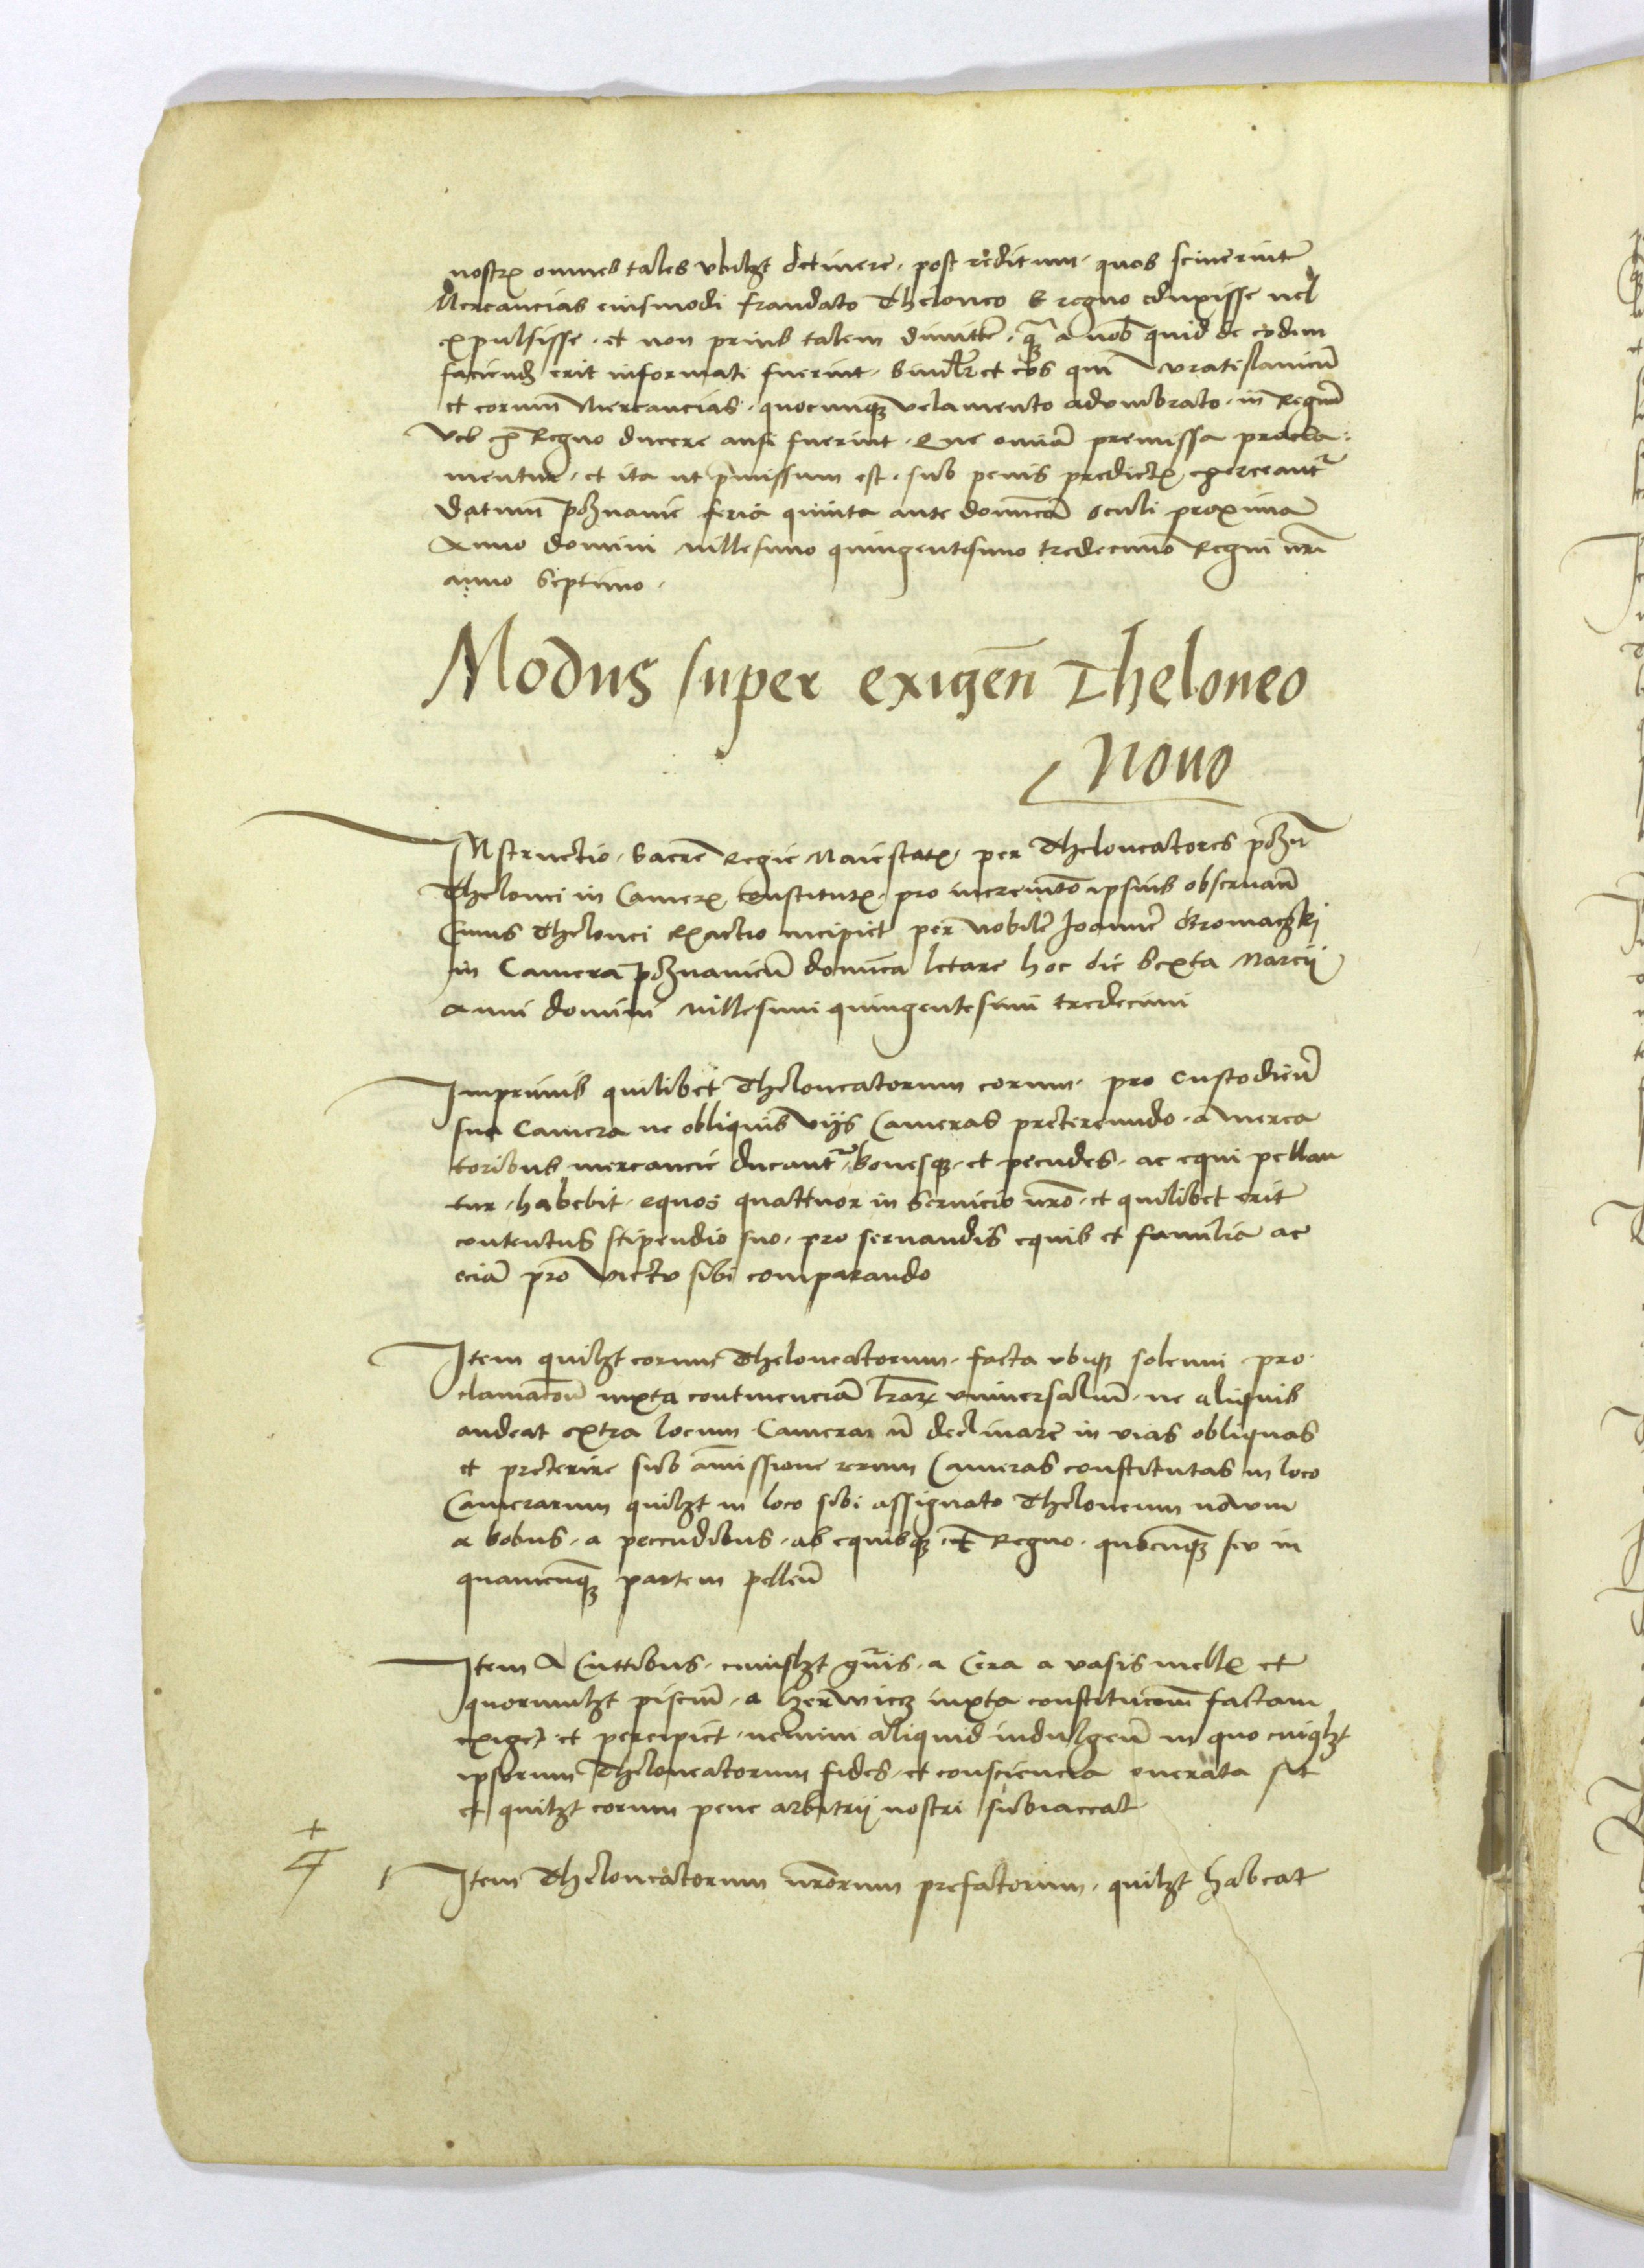 nostrꝭ omnes tales vbilꝫt detinere, post reditum, quos sciuerint
Mercancias eiusmodi fraudato Theloneo E regno eduxisse uel
expulsisse, et non prius talem dimitter̄, qꝫ a nob̄ quid de eodem
faciendꝭ erit informati fuerint, Simil̄r et eos qui Vratislauieñ
et eorum Mercancias, quocunqꝫ velamento adumbrato, in Regnū
Vel ex Regno ducere ausi fuerint, Que omnia premissa procla:
mentur, et ita ut p̄missum est, sub penis predictꝭ exerceant᷑
Datum poznanie feria quinta ante dominicā Oculi proxima
Anno domini millesimo quingentesimo tredecimo Regni nr̄i
anno Septimo.
Modus super exigeñ Theloneo
Nouo
INstructio, Sacre Regie Maiestatꝭ, per Theloneatores pozñ
Thelonei in Camerꝭ constitutꝭ, pro incremēto ipsius obseruañ
Cuius Thelonei Exactio incipiet per Nobilē Joannē Gromaczki
in Camera poznanieñ dominica letare hoc die Sexta Marcii
Anni domini Millesimi quingentesimi tredecimi
Imprimis quilibet Theloneatorum eorum, pro custodieñ
sua Camera ne obliquis Vijs Cameras pretereundo, a merca
toribus mercancie ducant᷑, bouesqꝫ, et pecudes, ac equi pellan
tur, habebit, equos quattuor in Seruicio nr̄o, et quilibet erit
contentus stipendio suo, pro seruandis equis et familia ac
eciā pro victu sibi comparando
Item quilꝫt eorum Theloneatorum, facta vbiqꝫ solenni pro
clamacōne iuxta continenciā lr̄arꝝ vniuersaliū, ne aliquis
audeat extra locum Camerarū declinare in vias obliquas
et preterire sub amissione rerum Cameras constitutas in loco
Camerarum quilꝫt in loco sibi assignato Theloneum nouum
a bobus, a peccudibus, ab equisqꝫ Regno, quocunqꝫ seu in
quamcunqꝫ partem pelleñ
Item A Cuttibus, cuiuslꝫt gn̄is, a Cera a vasis mellꝭ et
quorumlꝫt pisciū, a herwicz iuxta constitucōnem factam
exiget et percipiet, nemini aliquid indulgeñ in quo cuiqlꝫt
ipsorum Theloneatorum fides, et consciencia onerata sit
et quilꝫt eorum pene arbitrij nostri subiaceat
Item Theloneatorum nr̄orum prefatorum, quilꝫt habeat